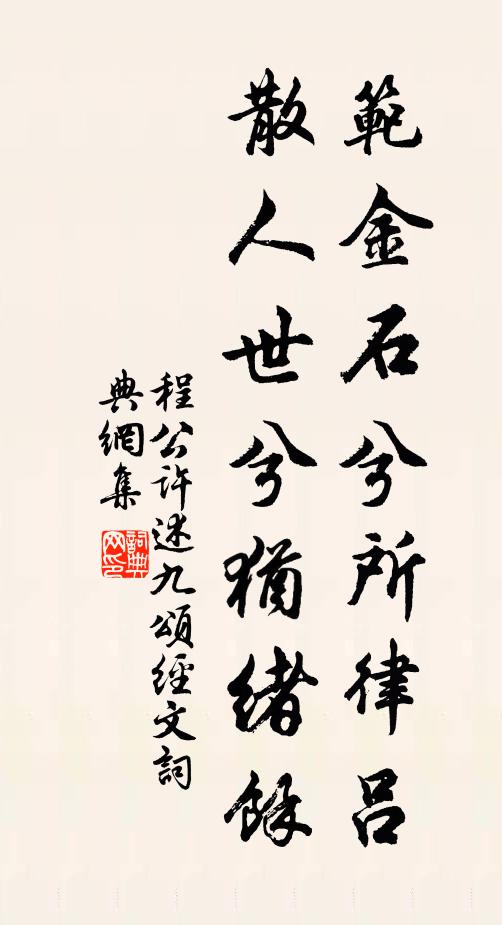 範金石兮所律呂
散人世兮猶緒餘
程公許述九頌經文詞
典網集
詞典
网印